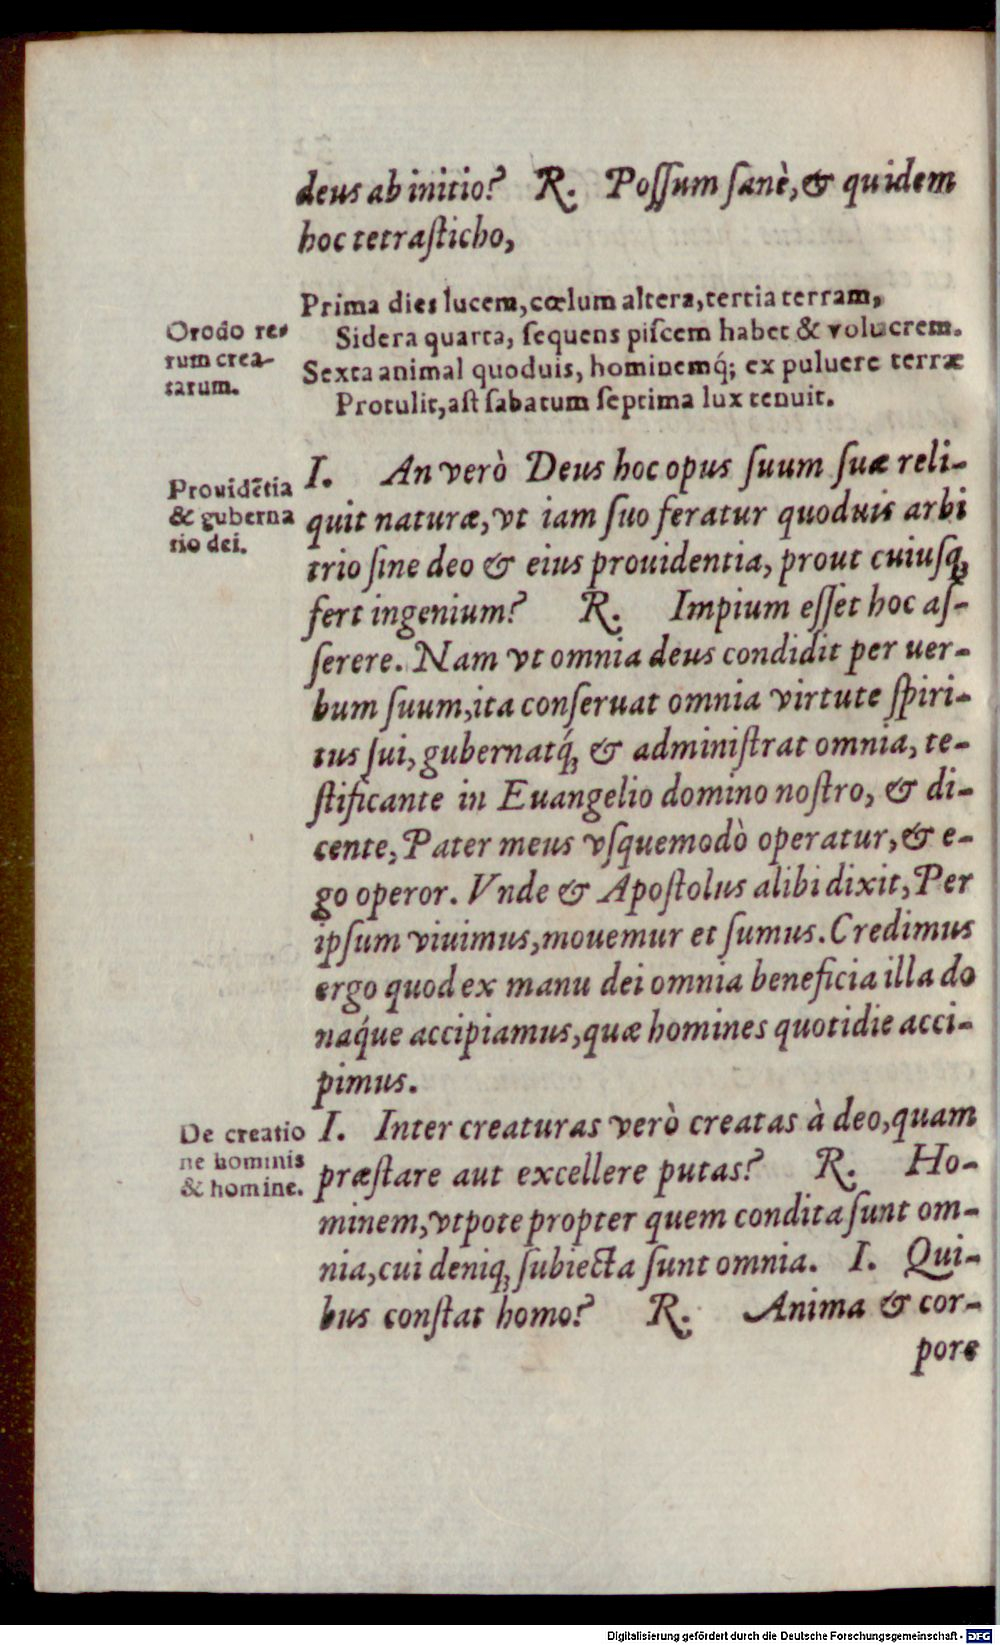 deus ab initio? R. Poſſum ſanè, & quidem
hoc tetraſticho,
Prima dies lucem, cœlum altera, tertia terram,
Sidera quarta, ſequens piſcem habet & volucrem.
Sexta animal quoduis, hominemq́; ex puluere terræ
Protulit, aſt ſabatum ſeptima lux tenuit.
Orodo re-
rum crea-
tarum.
I. An verò Deus hoc opus ſuum ſuæ reli-
quit naturæ, vt iam ſuo feratur quoduis arbi
trio ſine deo & eius prouidentia, prout cuiuſq́;
fert ingenium? R. Impium eſſet hoc aſ-
ſerere. Nam vt omnia deus condidit per uer-
bum ſuum, ita conſeruat omnia virtute ſpiri-
tus ſui, gubernatq́; & adminiſtrat omnia, te-
ſtificante in Euangelio domino noſtro, & di-
cente, Pater meus vſquemodò operatur, & e-
go operor. Vnde & Apoſtolus alibi dixit, Per
ipſum viuimus, mouemur et ſumus. Credimus
ergo quod ex manu dei omnia beneficia illa do
naq́ue accipiamus, quæ homines quotidie acci-
pimus.
Prouidẽtia
& guberna
tio dei.
I. Inter creaturas verò creatas à deo, quam
præſtare aut excellere putas? R. Ho-
minem, vtpote propter quem condita ſunt om-
nia, cui deniq; ſubiecta ſunt omnia. I. Qui-
bus conſtat homo? R. Anima & cor-
pore
De creatio
ne hominis
& homine.
Digitalisierung gefördert durch die Deutsche Forschungsgemeinschaft - DFG